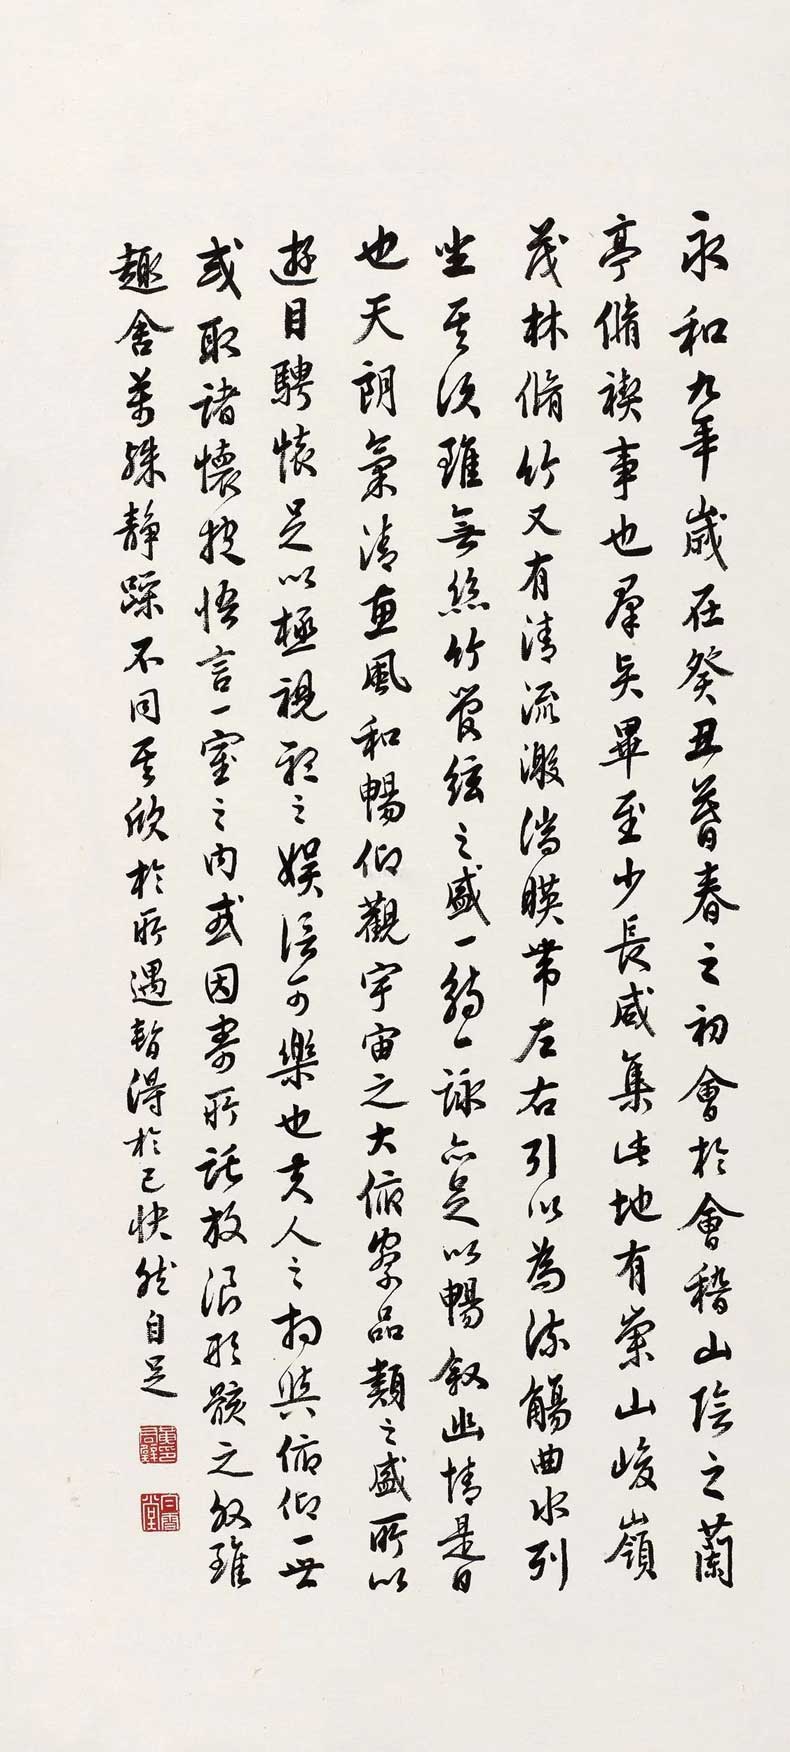 永和九年歲在癸丑暮春之初會於會稽山陰之蘭
亭脩禊事也羣賢畢至少長咸集此地有崇山峻嶺
茂林脩竹又有清流激湍暎帶左右引以為流觴曲水列
坐其次雖無絲竹管絃之盛一觴一詠亦足以暢敘幽情是日
也天朗氣清惠風和暢仰觀宇宙之大俯察品類之盛所以
遊目騁懷足以極視聽之娛信可樂也夫人之相與俯仰一世
或取諸懷抱悟言一室之內或因寄所託放浪形骸之外雖
趣舍萬殊靜躁不同其欣於所遇暫得於己快然自足